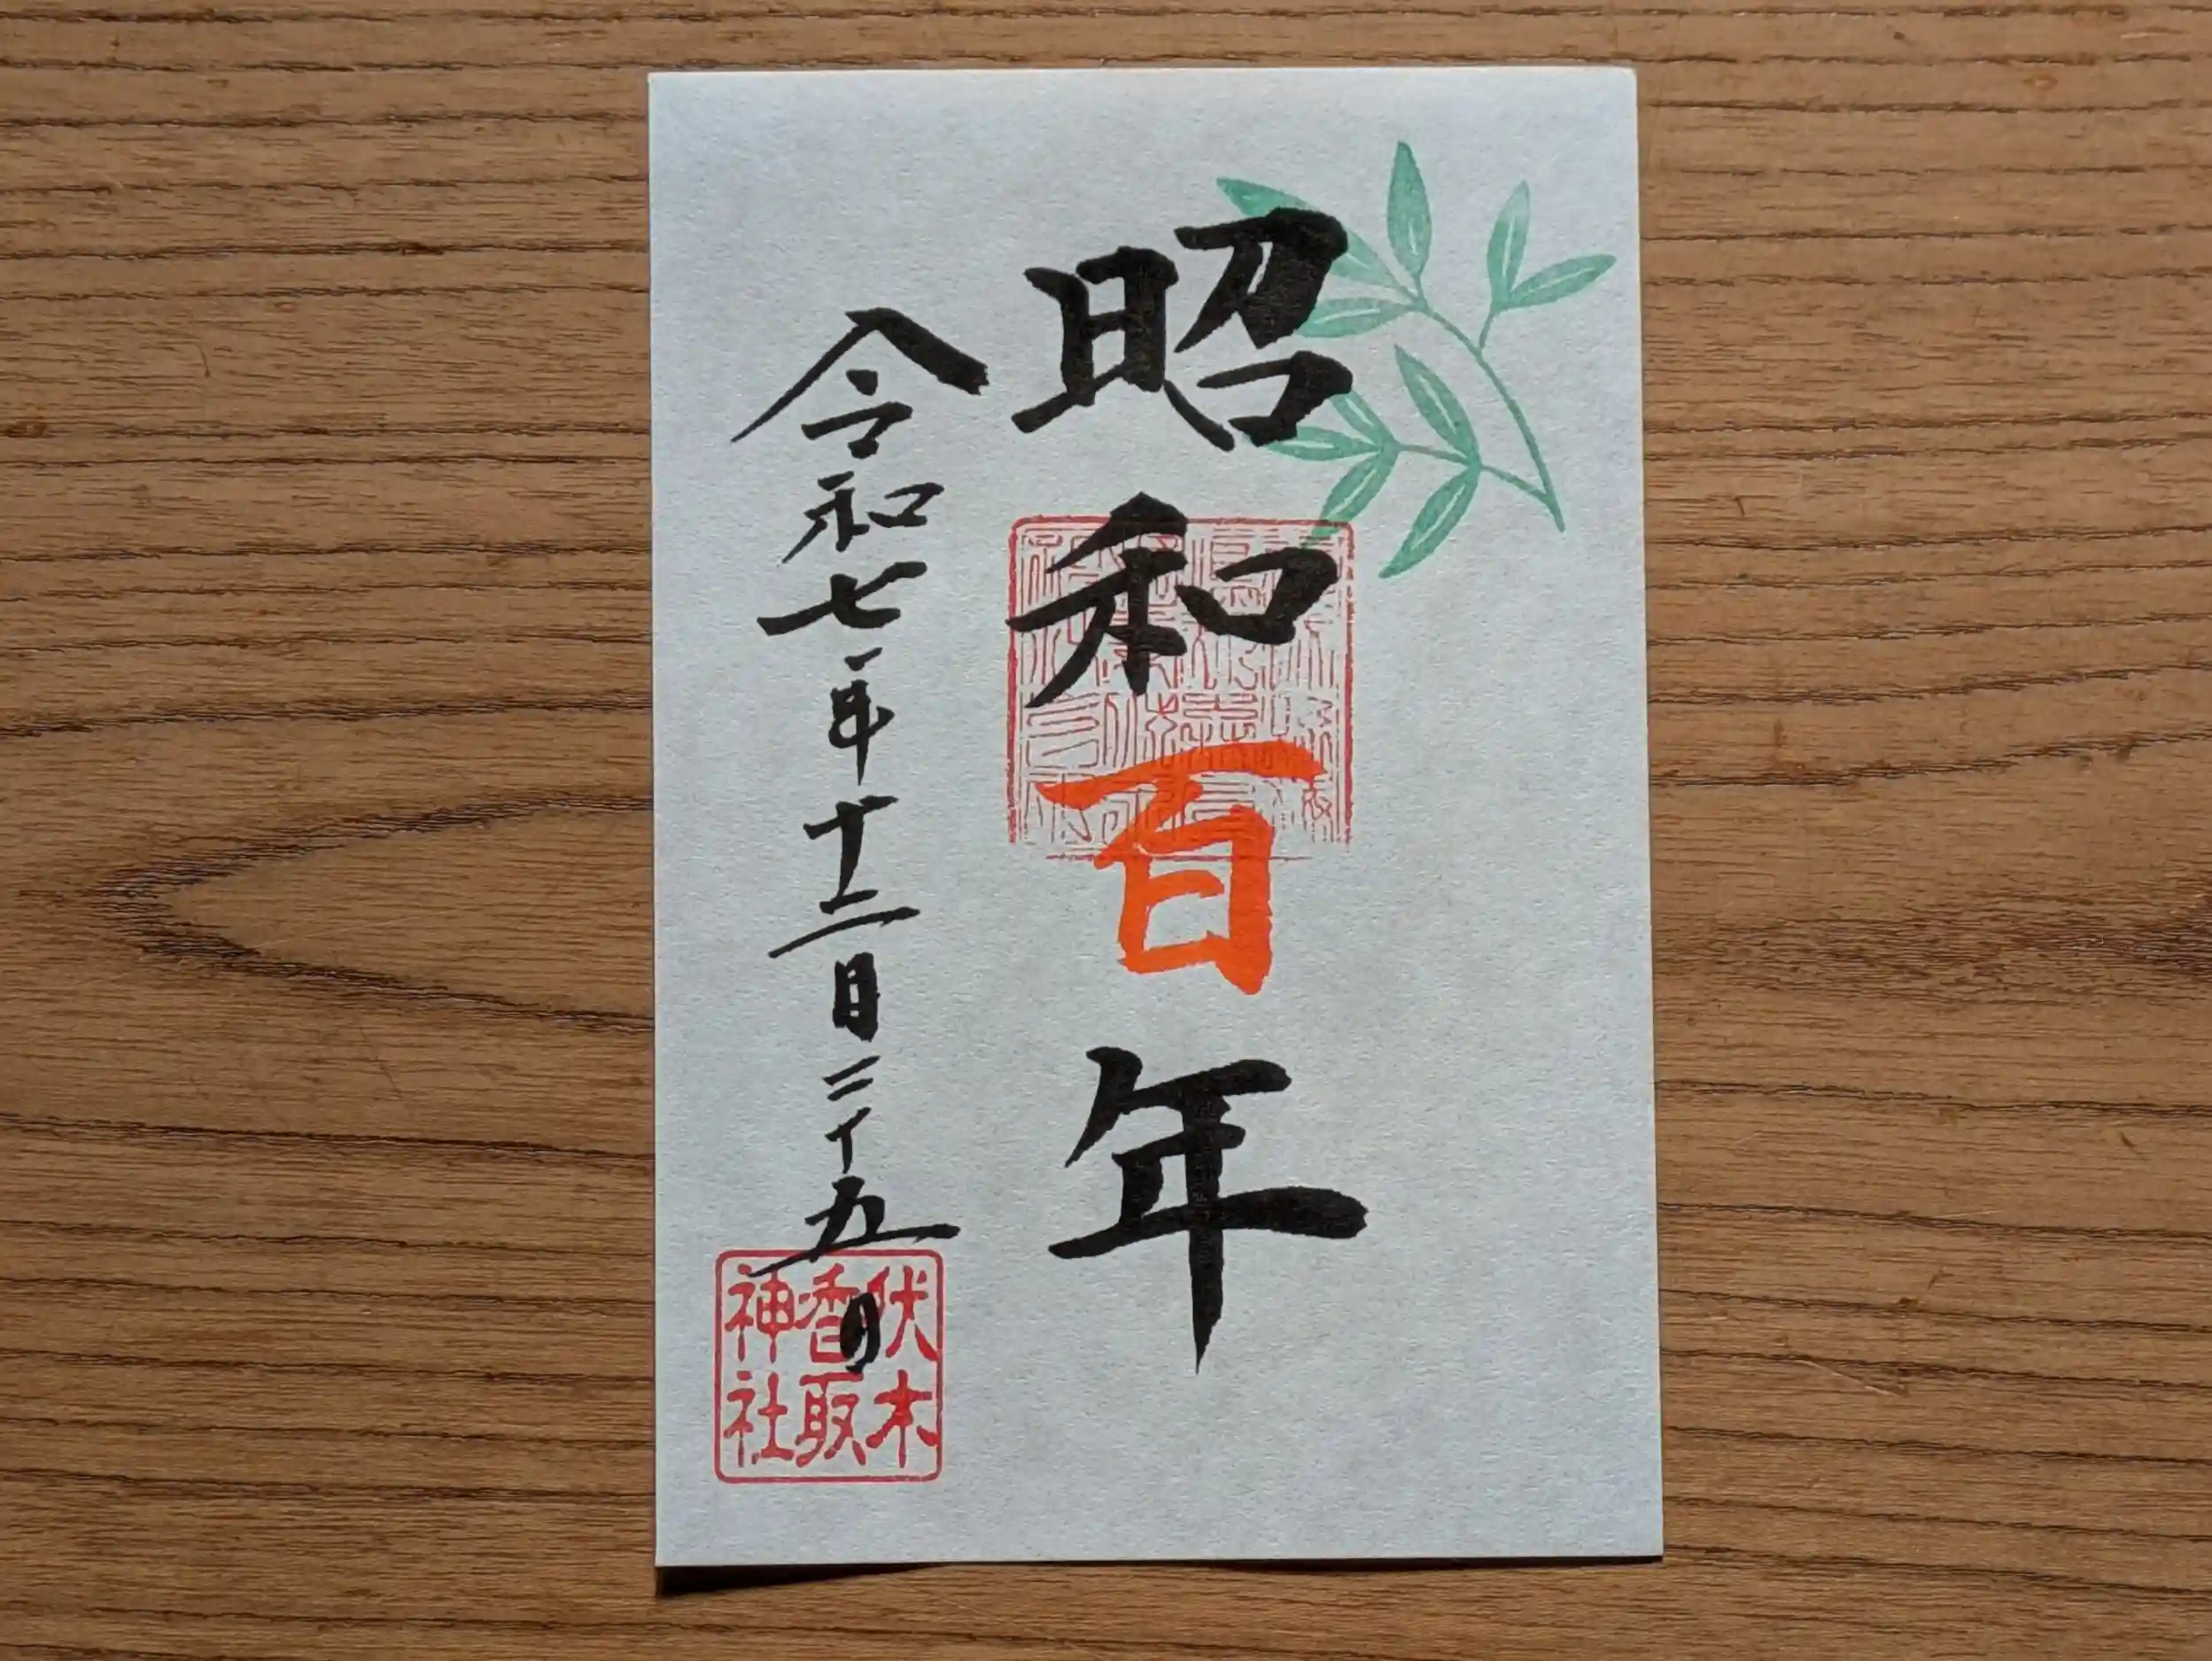 昭和百年
令和七年十二月二十五日
伏木
香取
神社